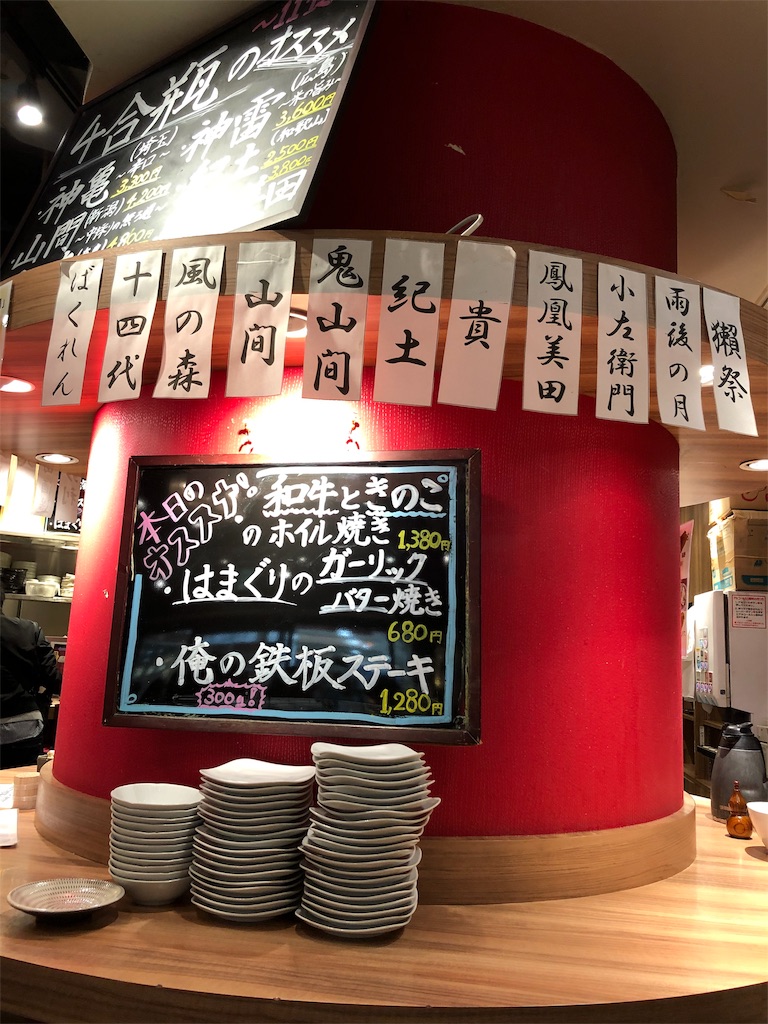 ～11/
4合瓶のオススメ
神亀
(埼玉)
～辛口～
3,300円
山間
(新潟)
4,200円
4,800円
神雷
(広島)
3,600円
紀土
(和歌山)
2,500円
3,800円
田
ばくれん
十四代
風の森
山間
鬼山間
紀土
貴
鳳凰美田
小左衛門
雨後の月
獺祭
本日の
オススメ!
・和牛ときのこ
のホイル焼き
1,380円
・はまぐりのガーリック
バター焼き
680円
・俺の鉄板ステーキ
300g!
1,280円
はまぐ